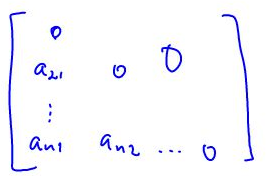 0
a₂₁ 0 0
⋮
aₙ₁ aₙ₂ ... 0